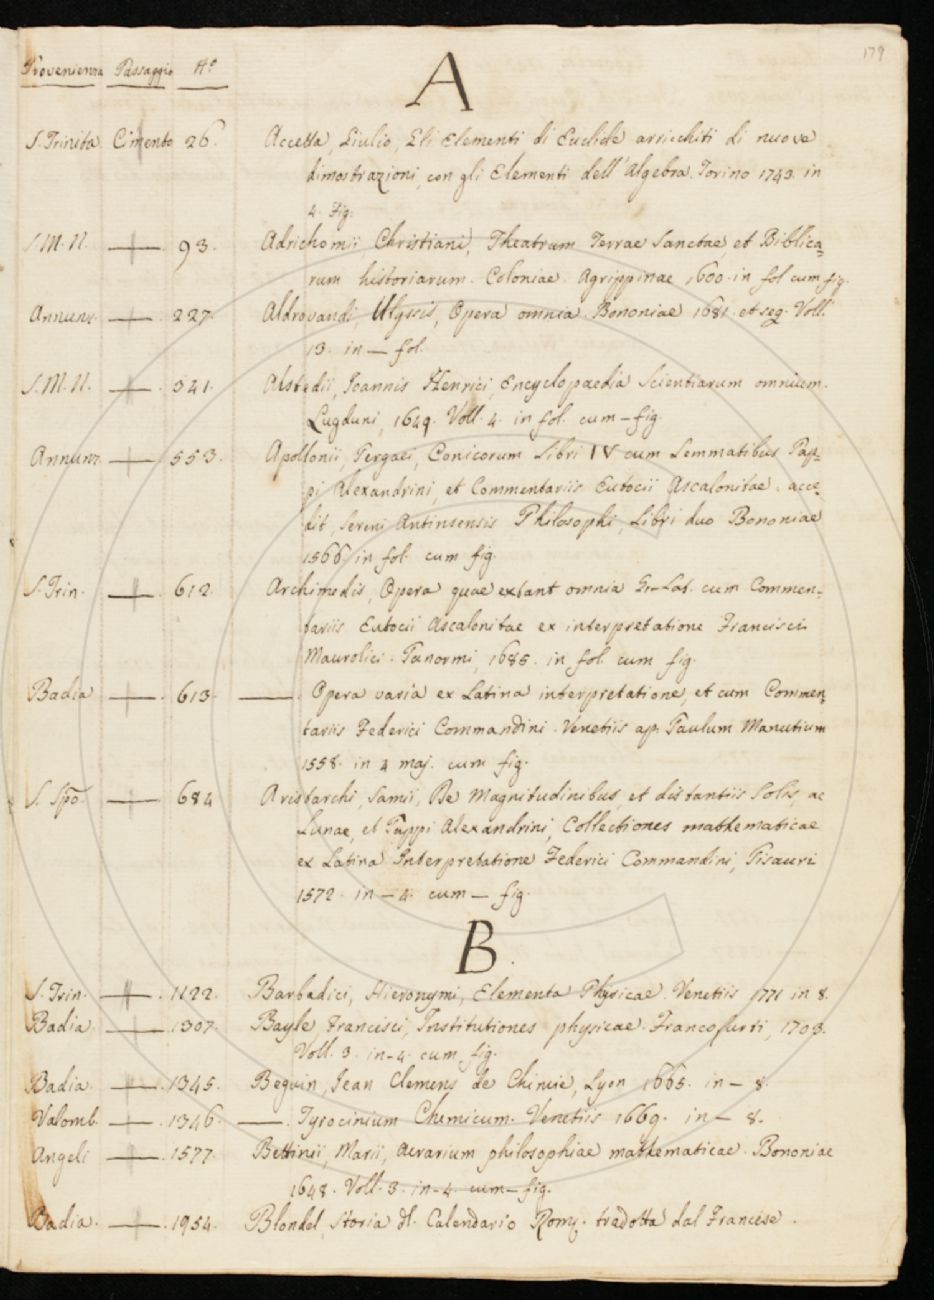 179
Provenienza Passaggio Nº
A
S. Trinita. Cimento 26. Accetta, Giulio, Gli Elementi di Euclide arricchiti di nuove
dimostrazioni, con gli Elementi dell'Algebra. Torino 1743. in
4. Fig.
S. M. N. 93. Adrichomii, Christiani, Theatrum Terrae Sanctae, et Biblica=
rum historiarum. Coloniae. Agrippinae 1600. in fol cum fig.
Annunz. 227. Aldrovandi, Ulyssis, Opera omnia. Bononiae 1681. et seq. Voll.
13. in — fol.
S. M. N. 341. Alstedii, Joannis Henrici, Encyclopaedia Scientiarum omnium.
Lugduni, 1649. Voll. 4. in fol. cum — fig.
Annunz. 553. Apollonii, Pergaei, Conicorum Libri IV cum Lemmatibus Pap=
pi Alexandrini, et Commentariis Eutocii Ascalonitae. acce=
dit, Sereni Antinsensis Philosophi, Libri duo Bononiae
1566. in fol. cum fig.
S. Trin. 612. Archimedis, Opera quae extant omnia Gr-Lat. cum Commen=
tariis Eutocii Ascalonitae ex interpretatione Francisci
Maurolici. Panormi, 1685. in fol. cum fig.
Badia 613. —— . Opera varia ex Latina interpretatione, et cum Commen=
tariis Federici Commandini. Venetiis ap. Paulum Manutium
1558. in 4 maj. cum fig.
S. Spo. 684 Aristarchi, Samii, De Magnitudinibus, et distantiis Solis, ac
Lunae, et Pappi Alexandrini, Collectiones mathematicae
ex Latina Interpretatione Federici Commandini, Pisauri
1572. in — 4. cum — fig.
B.
S. Trin. 1122. Barbadici, Hieronymi, Elementa Physicae. Venetiis 1771 in 8.
Badia. 1307. Bayle Francisci, Institutiones physicae. Francofurti, 1703.
Voll. 3. in-4. cum fig.
Badia. 1345. Beguin, Jean Clemens de Chimie, Lyon 1665. in — 8.
Valomb. 1346. —— . Tyrocinium Chemicum. Venetiis 1669. in — 8.
Angeli 1577. Bettinii, Marii, Aerarium philosophiae mathematicae. Bononiae
1648. Voll. 3. in-4. cum — fig.
Badia. 1954. Blondel, Storia dl. Calendario Romº. tradotta dal Francese.